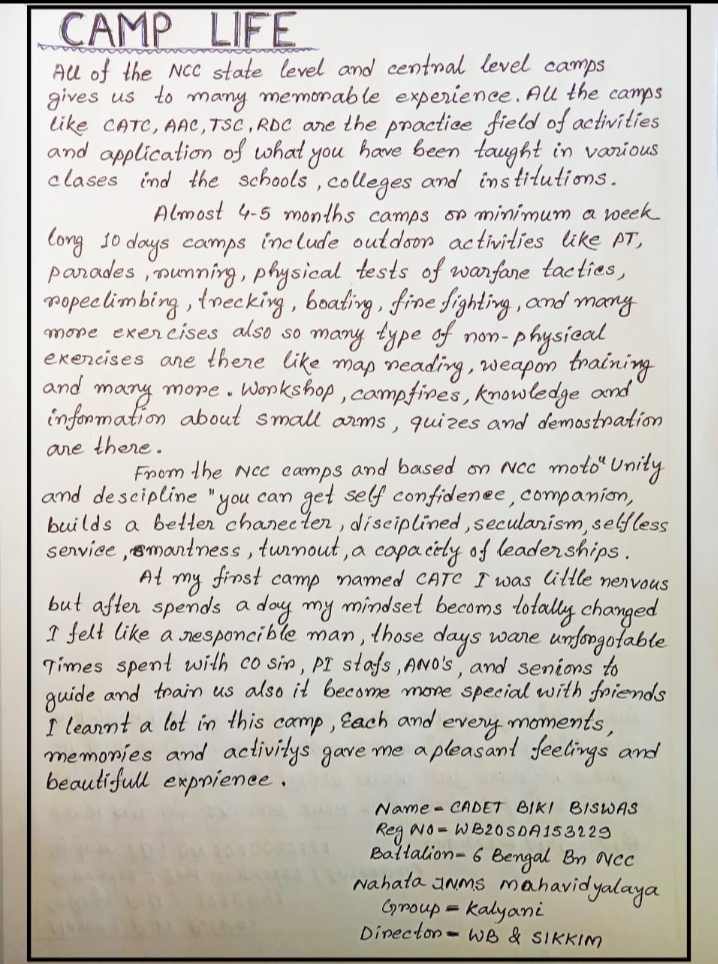 CAMP LIFE
All of the NCC state level and central level camps
gives us to many memorable experience. All the camps
like CATC, AAC, TSC, RDC are the practice field of activities
and application of what you have been taught in various
clases ind the schools, colleges and institutions.
Almost 4-5 months camps or minimum a week
long 10 days camps include outdoor activities like PT,
parades, running, physical tests of warfare tactics,
ropeclimbing, trecking, boating, fire fighting, and many
more exercises also so many type of non-physical
exercises are there like map reading, weapon training
and many more. Workshop, campfires, knowledge and
information about small arms, quizes and demostration
are there.
From the NCC camps and based on NCC moto "Unity
and descipline" you can get self confidence, companion,
builds a better charecter, disciplined, secularism, selfless
service, smartness, turnout, a capacity of leaderships.
At my first camp named CATC I was little nervous
but after spends a day my mindset becoms totally changed
I felt like a responcible man, those days ware unforgotable
Times spent with CO sir, PI stafs, ANO's, and seniors to
guide and train us also it become more special with friends
I learnt a lot in this camp, Each and every moments,
memories and activitys gave me a pleasant feelings and
beautifull exprience.
Name - CADET BIKI BISWAS
Reg NO = WB20SDA153229
Battalion - 6 Bengal Bn NCC
Nahata JNMS Mahavidyalaya
Group = Kalyani
Director - WB & SIKKIM